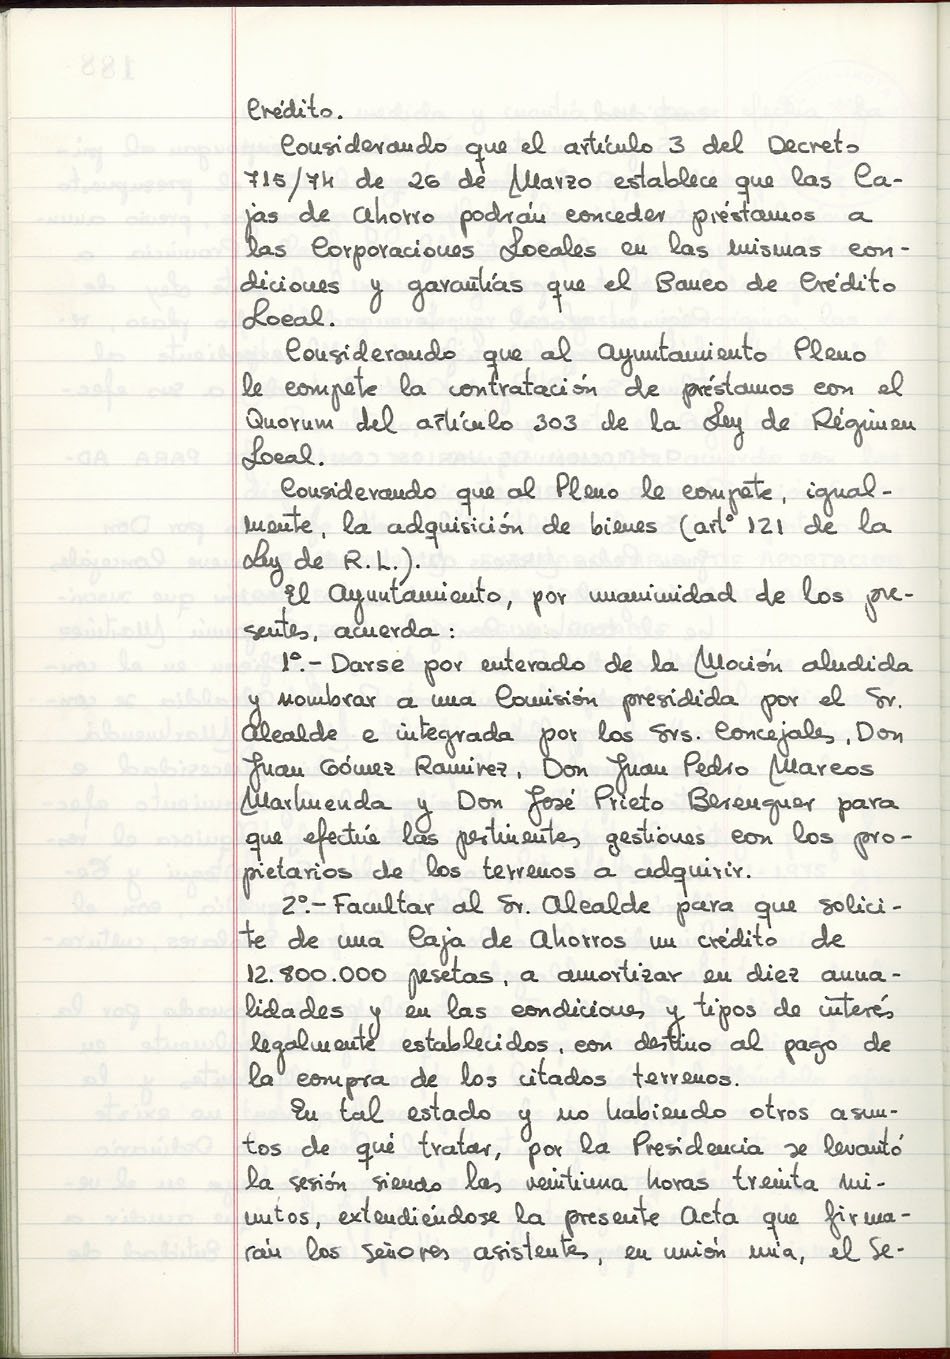 Crédito.
Considerando que el artículo 3 del Decreto
715/74 de 26 de Marzo establece que las Ca-
jas de Ahorro podrán conceder préstamos a
las Corporaciones Locales en las mismas con-
diciones y garantías que el Banco de Crédito
Local.
Considerando que al Ayuntamiento Pleno
le compete la contratación de préstamos con el
Quorum del artículo 303 de la Ley de Régimen
Local.
Considerando que al Pleno le compete, igual-
mente, la adquisición de bienes (artº 121 de la
Ley de R.L.).
El Ayuntamiento, por unanimidad de los pre-
sentes, acuerda:
1º.- Darse por enterado de la Moción aludida
y nombrar a una Comisión presidida por el Sr.
Alcalde e integrada por los Srs. Concejales, Don
Juan Gómez Ramirez, Don Juan Pedro Marcos
Marhuenda y Don José Prieto Berenguer para
que efectúe las pertinentes gestiones con los pro-
pietarios de los terrenos a adquirir.
2º.- Facultar al Sr. Alcalde para que solici-
te de una Caja de Ahorros un crédito de
12.800.000 pesetas, a amortizar en diez anua-
lidades y en las condiciones y tipos de interés
legalmente establecidos, con destino al pago de
la compra de los citados terrenos.
En tal estado y no habiendo otros asun-
tos de qué tratar, por la Presidencia se levantó
la sesión siendo las veintiuna horas treinta mi-
nutos, extendiéndose la presente Acta que firma-
rán los señores asistentes, en unión mía, el Se-